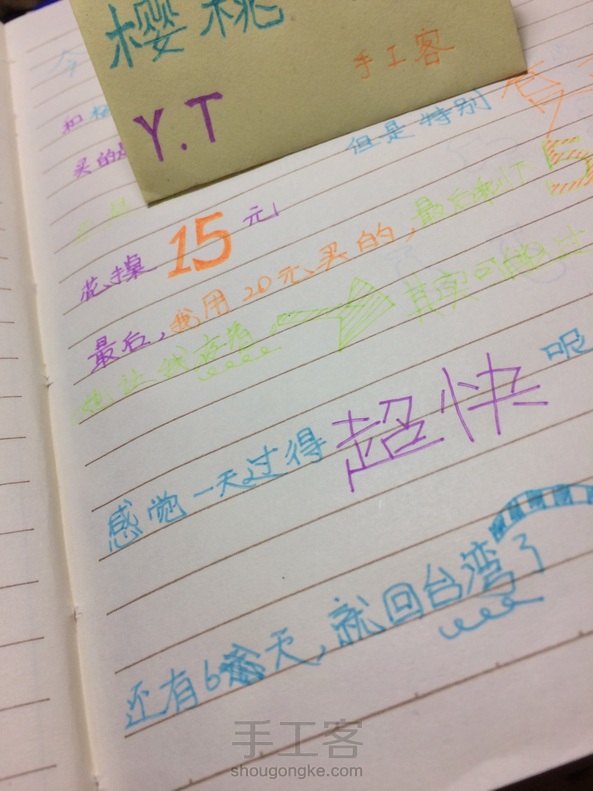 樱桃
手工客
Y.T
和
但是特别
买的是
花掉 15 元,
最后,我用20元买的,最后剩下 5
也让我 其实可能不过
感觉一天过得超快呢
还有6天,就回台湾了
手工客
shougongke.com